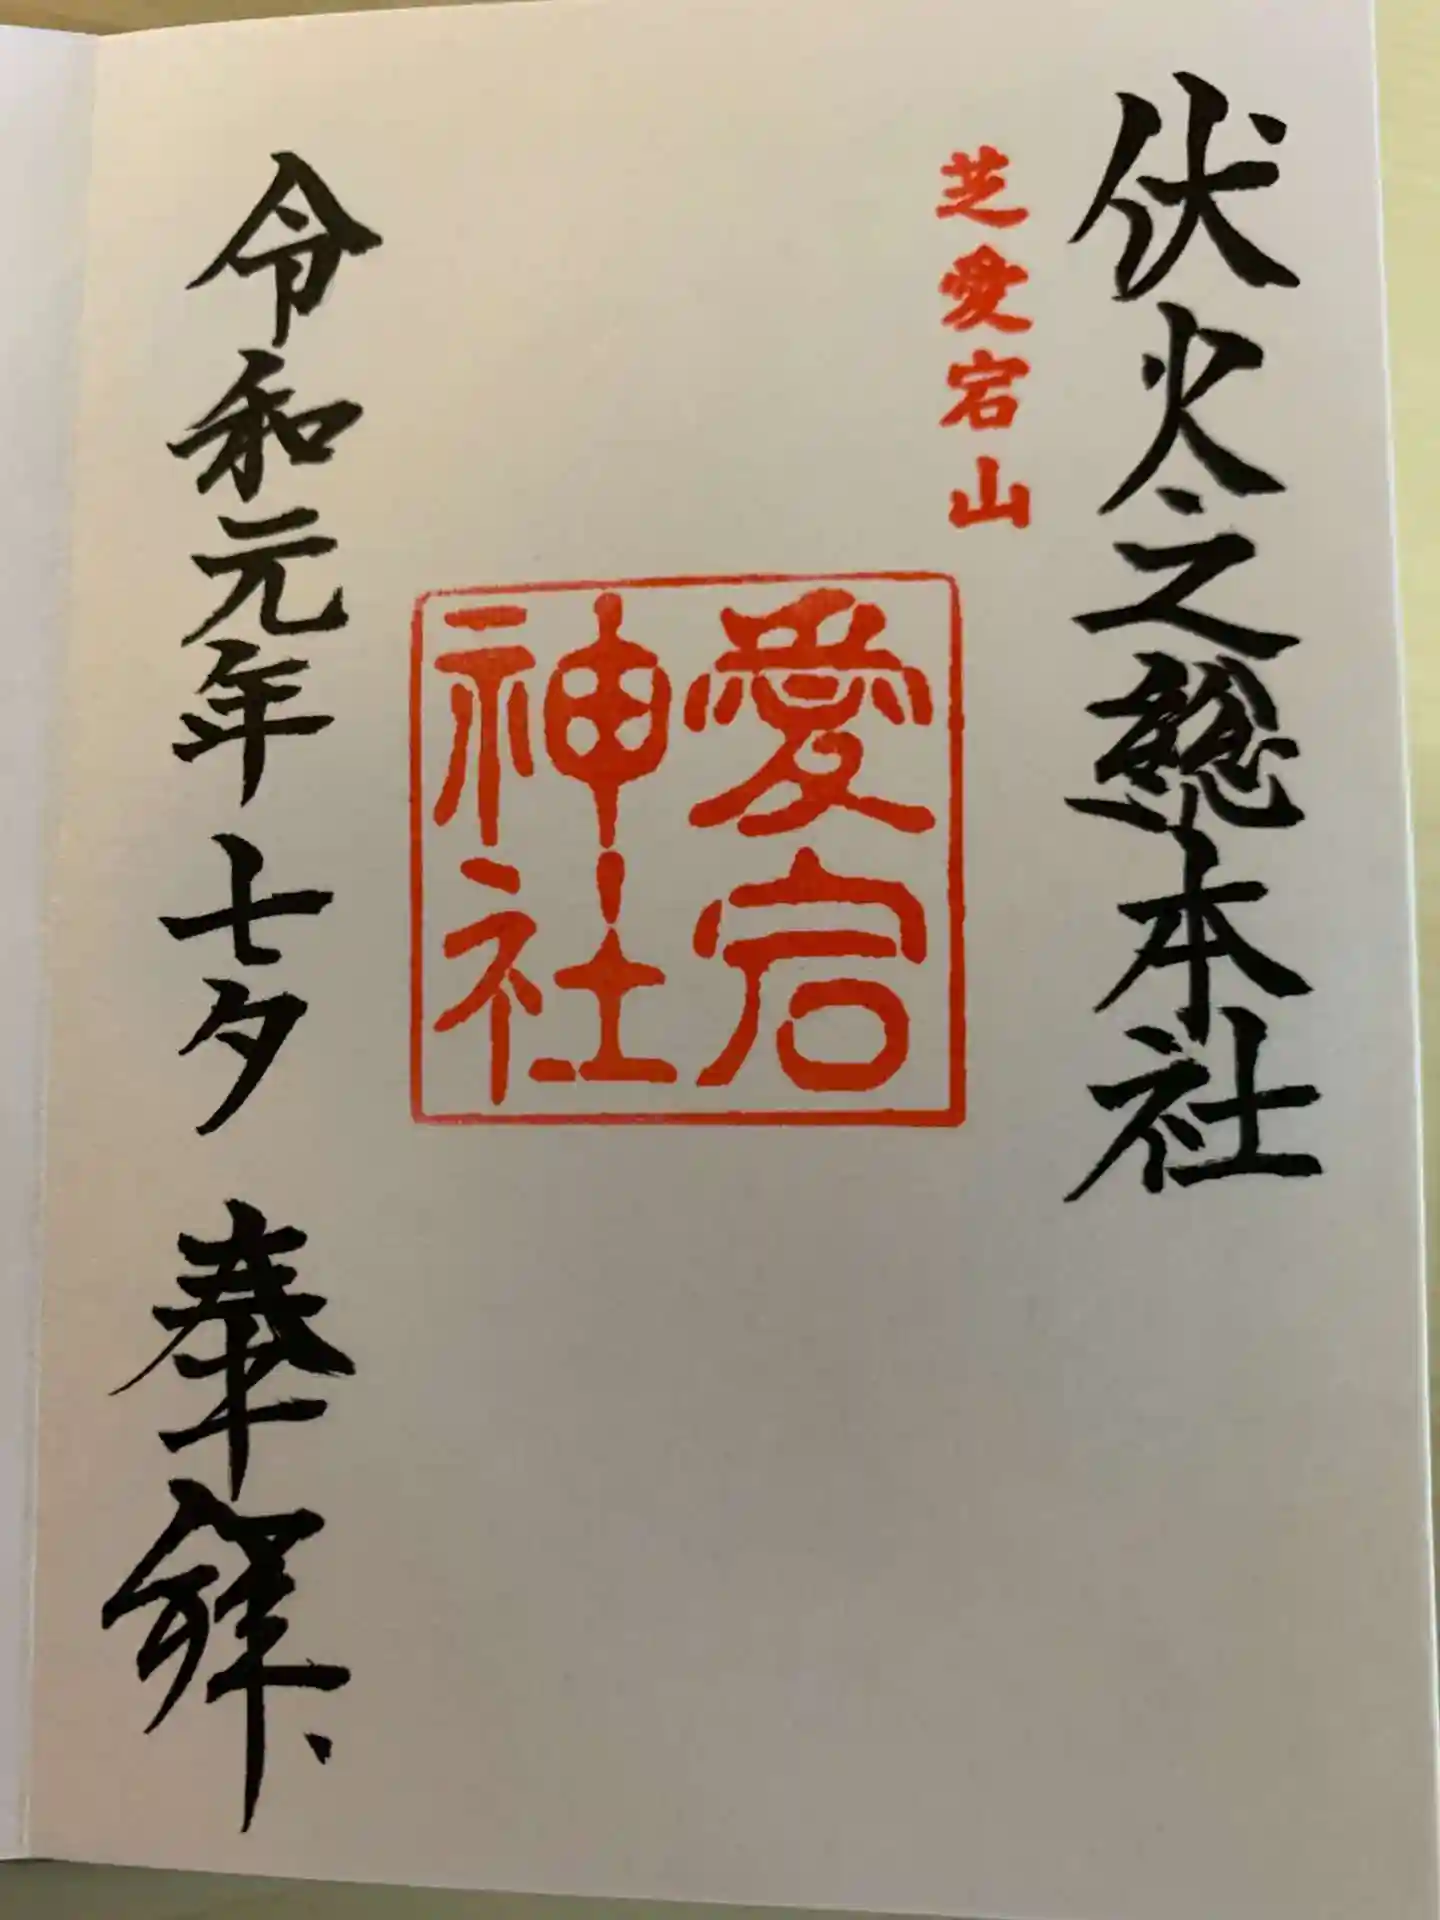 伏火之総本社
芝愛宕山
愛宕
神社
令和元年七夕 奉拝